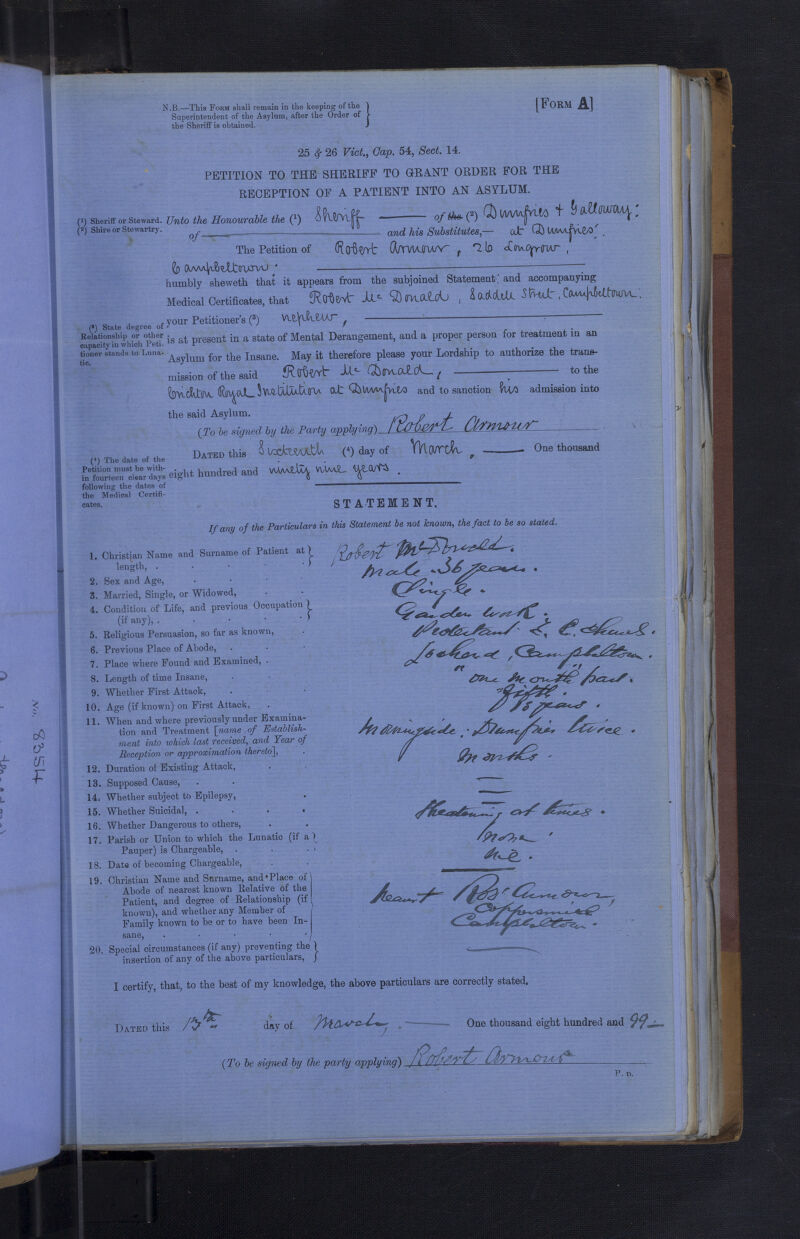 N.B.—This Form shall remain in the keeping of the
Superintendent of the Asylum, after the Order of
the Sheriff is obtained.
[Form A]
25 & 26 Vict., Cap. 54, Sect. 14.
PETITION TO THE SHERIFF TO GRANT ORDER FOR THE
RECEPTION OF A PATIENT INTO AN ASYLUM.
(¹) Sheriff or Steward.
(²) Shire or Stewartry.
Unto the Honourable the (¹) Sheriff of the (²) Dumfries & Galloway:
of and his Substitutes,— at Dumfries.
The Petition of Robert Armour, 26 Longrow,
Campbeltown:
humbly sheweth that it appears from the subjoined Statement and accompanying
Medical Certificates, that Robert McDonald, Saddell Street, Campbeltown.
your Petitioner's (³) nephew,
(³) State degree of
Relationship or other
capacity in which Peti-
tioner stands to Luna-
tic.
is at present in a state of Mental Derangement, and a proper person for treatment in an
Asylum for the Insane. May it therefore please your Lordship to authorize the trans-
mission of the said Robert McDonald, to the
Crichton Royal Institution at Dumfries and to sanction his admission into
the said Asylum.
(To be signed by the Party applying) Robert Armour
Dated this Sixteenth (⁴) day of March, One thousand
eight hundred and ninety nine years.
(⁴) The date of the
Petition must be with-
in fourteen clear days
following the dates of
the Medical Certifi-
cates.
STATEMENT.
If any of the Particulars in this Statement be not known, the fact to be so stated.
1. Christian Name and Surname of Patient at
length, . Robert McDonald.
2. Sex and Age, Male 36 years.
3. Married, Single, or Widowed, Single.
4. Condition of Life, and previous Occupation
(if any), . Garden work.
5. Religious Persuasion, so far as known, Protestant E. C. Church.
6. Previous Place of Abode, Lochend, Campbeltown.
7. Place where Found and Examined, . " "
8. Length of time Insane, one month past.
9. Whether First Attack, Fifth.
10. Age (if known) on First Attack, 15 years.
11. When and where previously under Examina-
tion and Treatment [name of Establish-
ment into which last received, and Year of
Reception or approximation thereto],
Morningside: Dumfries twice.
12. Duration of Existing Attack, Months.
13. Supposed Cause, —
14. Whether subject to Epilepsy, —
15. Whether Suicidal, . —
16. Whether Dangerous to others, Threatening at times.
17. Parish or Union to which the Lunatic (if a
Pauper) is Chargeable, . None
18. Date of becoming Chargeable,
19. Christian Name and Surname, and Place of
Abode of nearest known Relative of the
Patient, and degree of Relationship (if
known), and whether any Member of
Family known to be or to have been In-
sane,
Robt Armour,
Coppersmith
Campbeltown.
20. Special circumstances (if any) preventing the
insertion of any of the above particulars, —
I certify, that, to the best of my knowledge, the above particulars are correctly stated.
Dated this 13th day of March, One thousand eight hundred and 99
(To be signed by the party applying) Robert Armour
P. D.
No. 8354